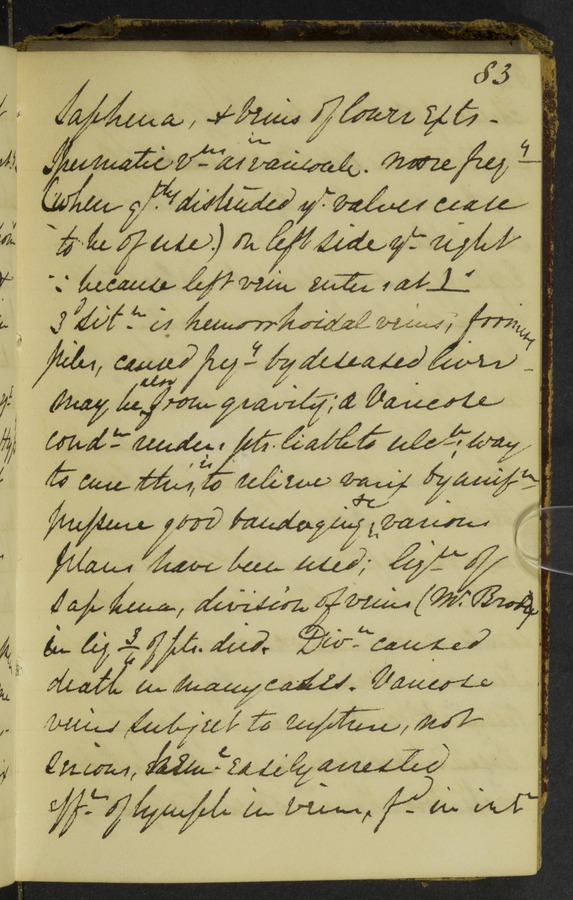 83
Saphena, & veins of lower Exts -
Spermatic vns as in varicocele. more freqy
(when gtly distended ye valves cease
to be of use.) on left side yn right
∵ because left vein enters at L
3d sitn is hemorrhoidal veins, forming
piles, caused freqy by diseased liver -
may be also from gravity; a Varicose
condn renders pts. liable to ulcn; way
to cure this, is to relieve varix by unifm
pressure good bandaging &c, various
plans have been used; lign of
Saphena, division of veins (Mr. Brodie
in lig 3/4 of pts. died. Divn caused
death in many cases. Varicose
veins subject to rupture, not
serious, haeme easily arrested
effn of lymph in veins, fd in int